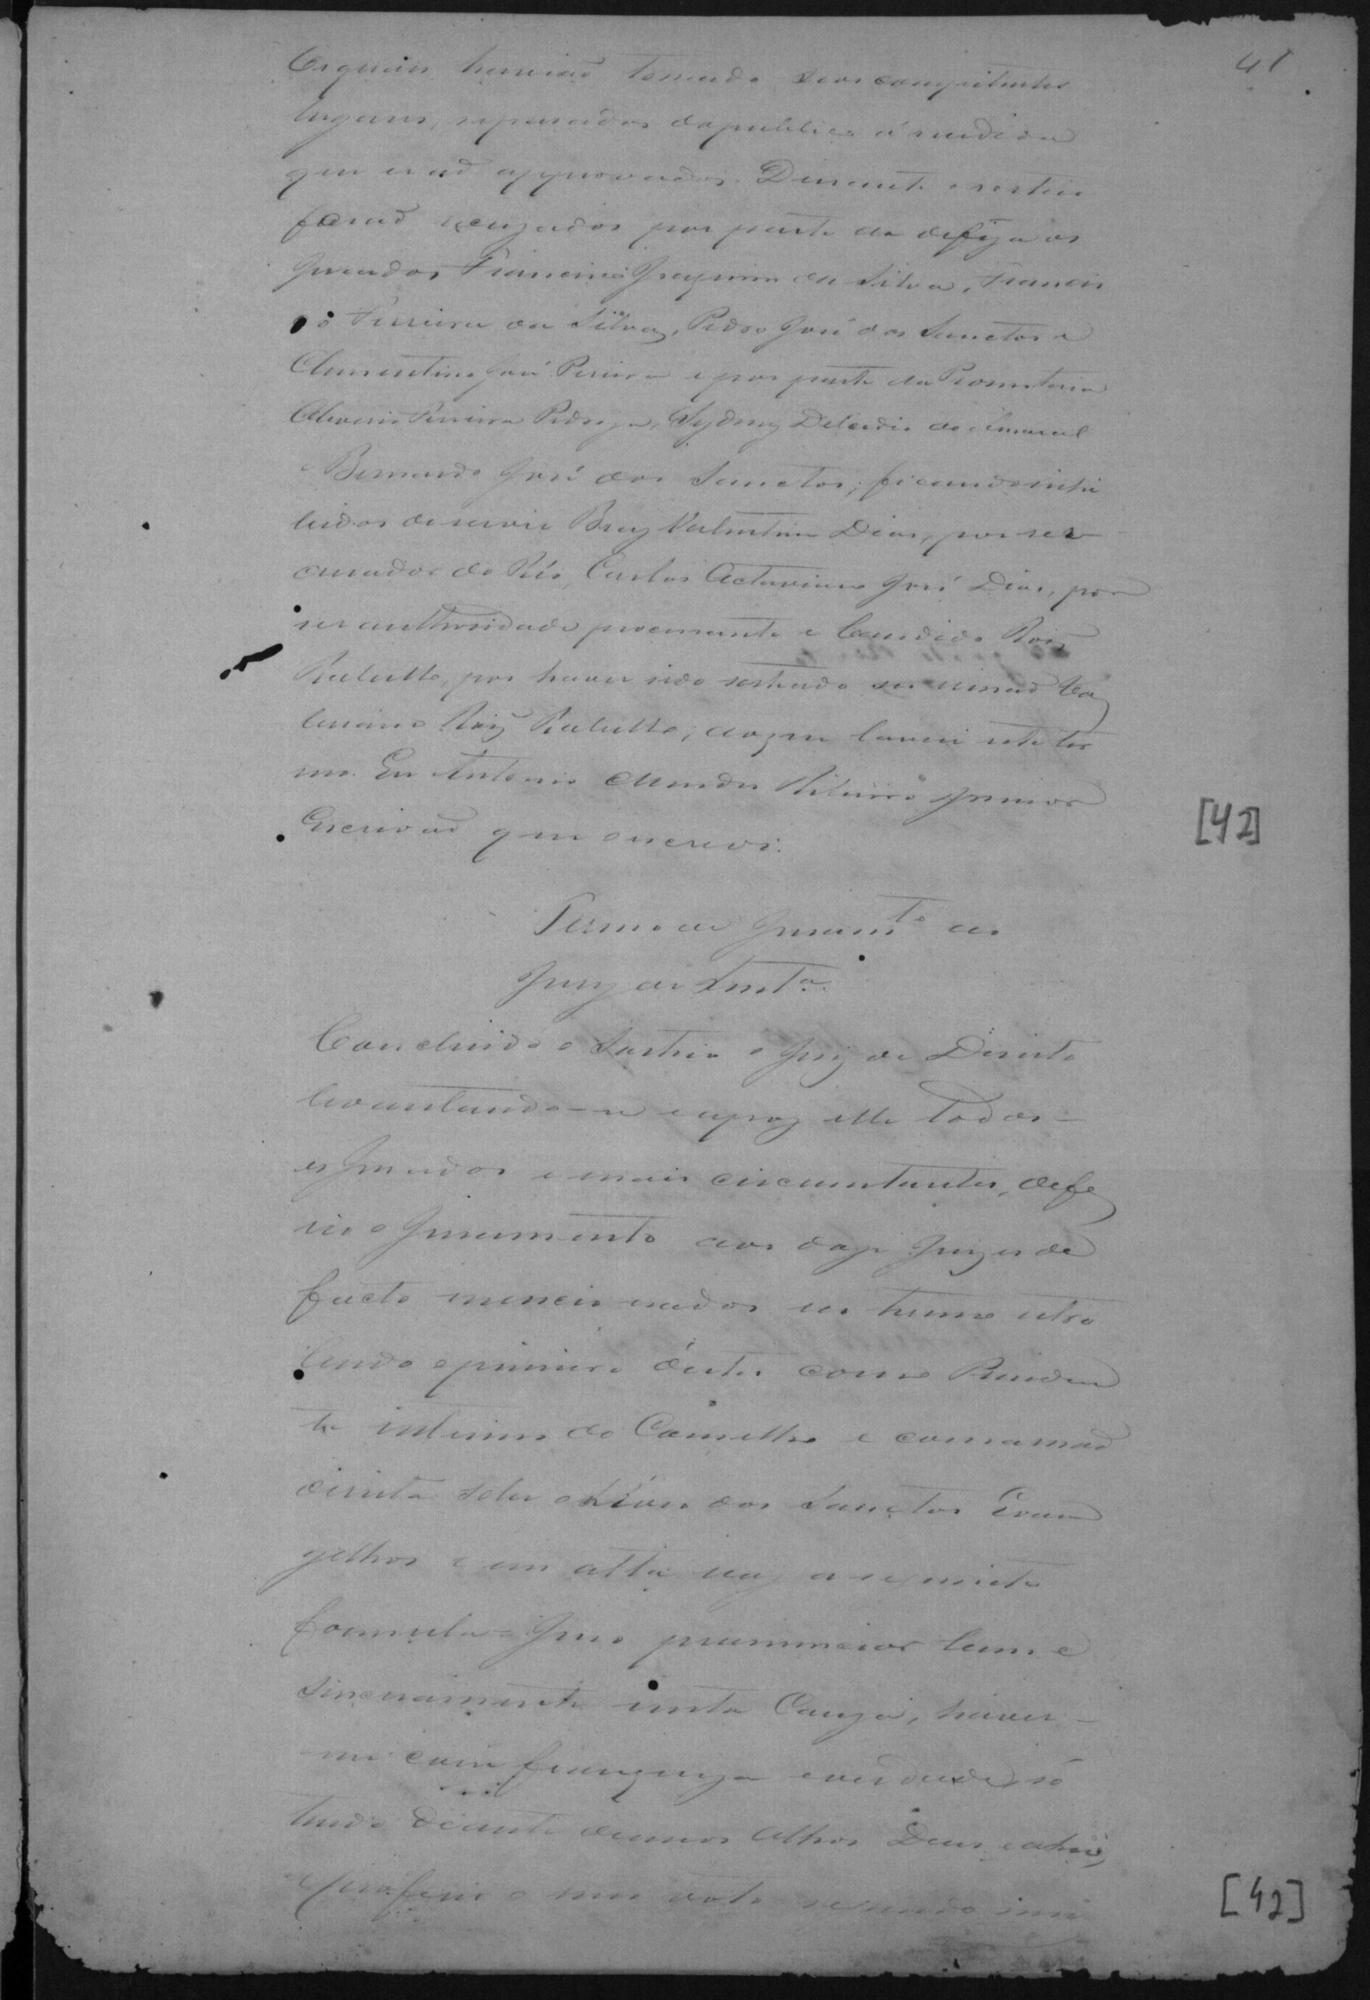 41
Os quaes haviaõ tomado seos competentes
lugares, separados do publico á medida
que eraõ approvados. Durante o sorteio
foraõ recuzados por parte da defeza os
Jurados Francisco Joaquim da Silva, Francis
co Ferreira da Silva, Pedro José dos Sanctos e
Clementino José Pereira e por parte da Promotoria
Ferreira Pedroza, Sydney Delcidio do Amaral
e Bernardo José dos Sanctos; ficando inhi
bidos de servir Braz Valentim Dias, por ser
curador do Réo, Carlos Octaviano José Dias, por
ser authoridade processante e Candido Roiz
Rabello, por haver sido sorteado seu irmaõ
Roiz Rabello; do que lavrei este ter
mo. Eu Antonio Mendes Ribeiro Junior
Escrivaõ que escrevi.
[42]
Termo de Juramto do
Jury de Senta.
Concluido o Sorteio o Juiz de Direito
levantando-se e apoz elle todos
os Jurados e mais circumstantes, defe
rio o Juramento aos doze Juizes de
facto mencionados no termo retro
lendo o primeiro destes como Presiden
te interino do Conselho e com a maõ
direita sobre o Livro dos Sanctos Evan
gelhos e em alta voz a seguinte
formula = Juro pronunciar bem e
sinceramente nesta Cauza, haver-
me com franqueza e verdade, só
tendo diante de meos olhos Deus e a Lei,
e proferir o meu voto segundo
[42]